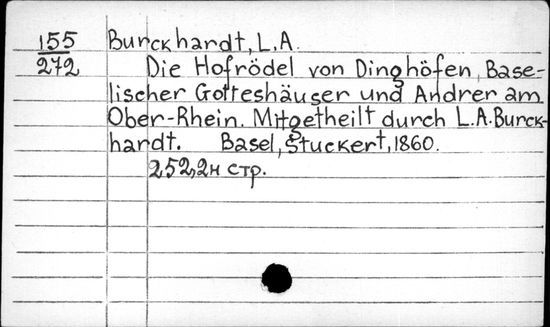 155 Burckhardt, L.A.
272 Die Hofrödel von Dinghöfen, Base-
lischer Gotteshäuser und Andrer am
Ober-Rhein. Mitgetheilt durch L.A. Burck-
hardt. Basel, Stuckert, 1860.
252,2н стр.